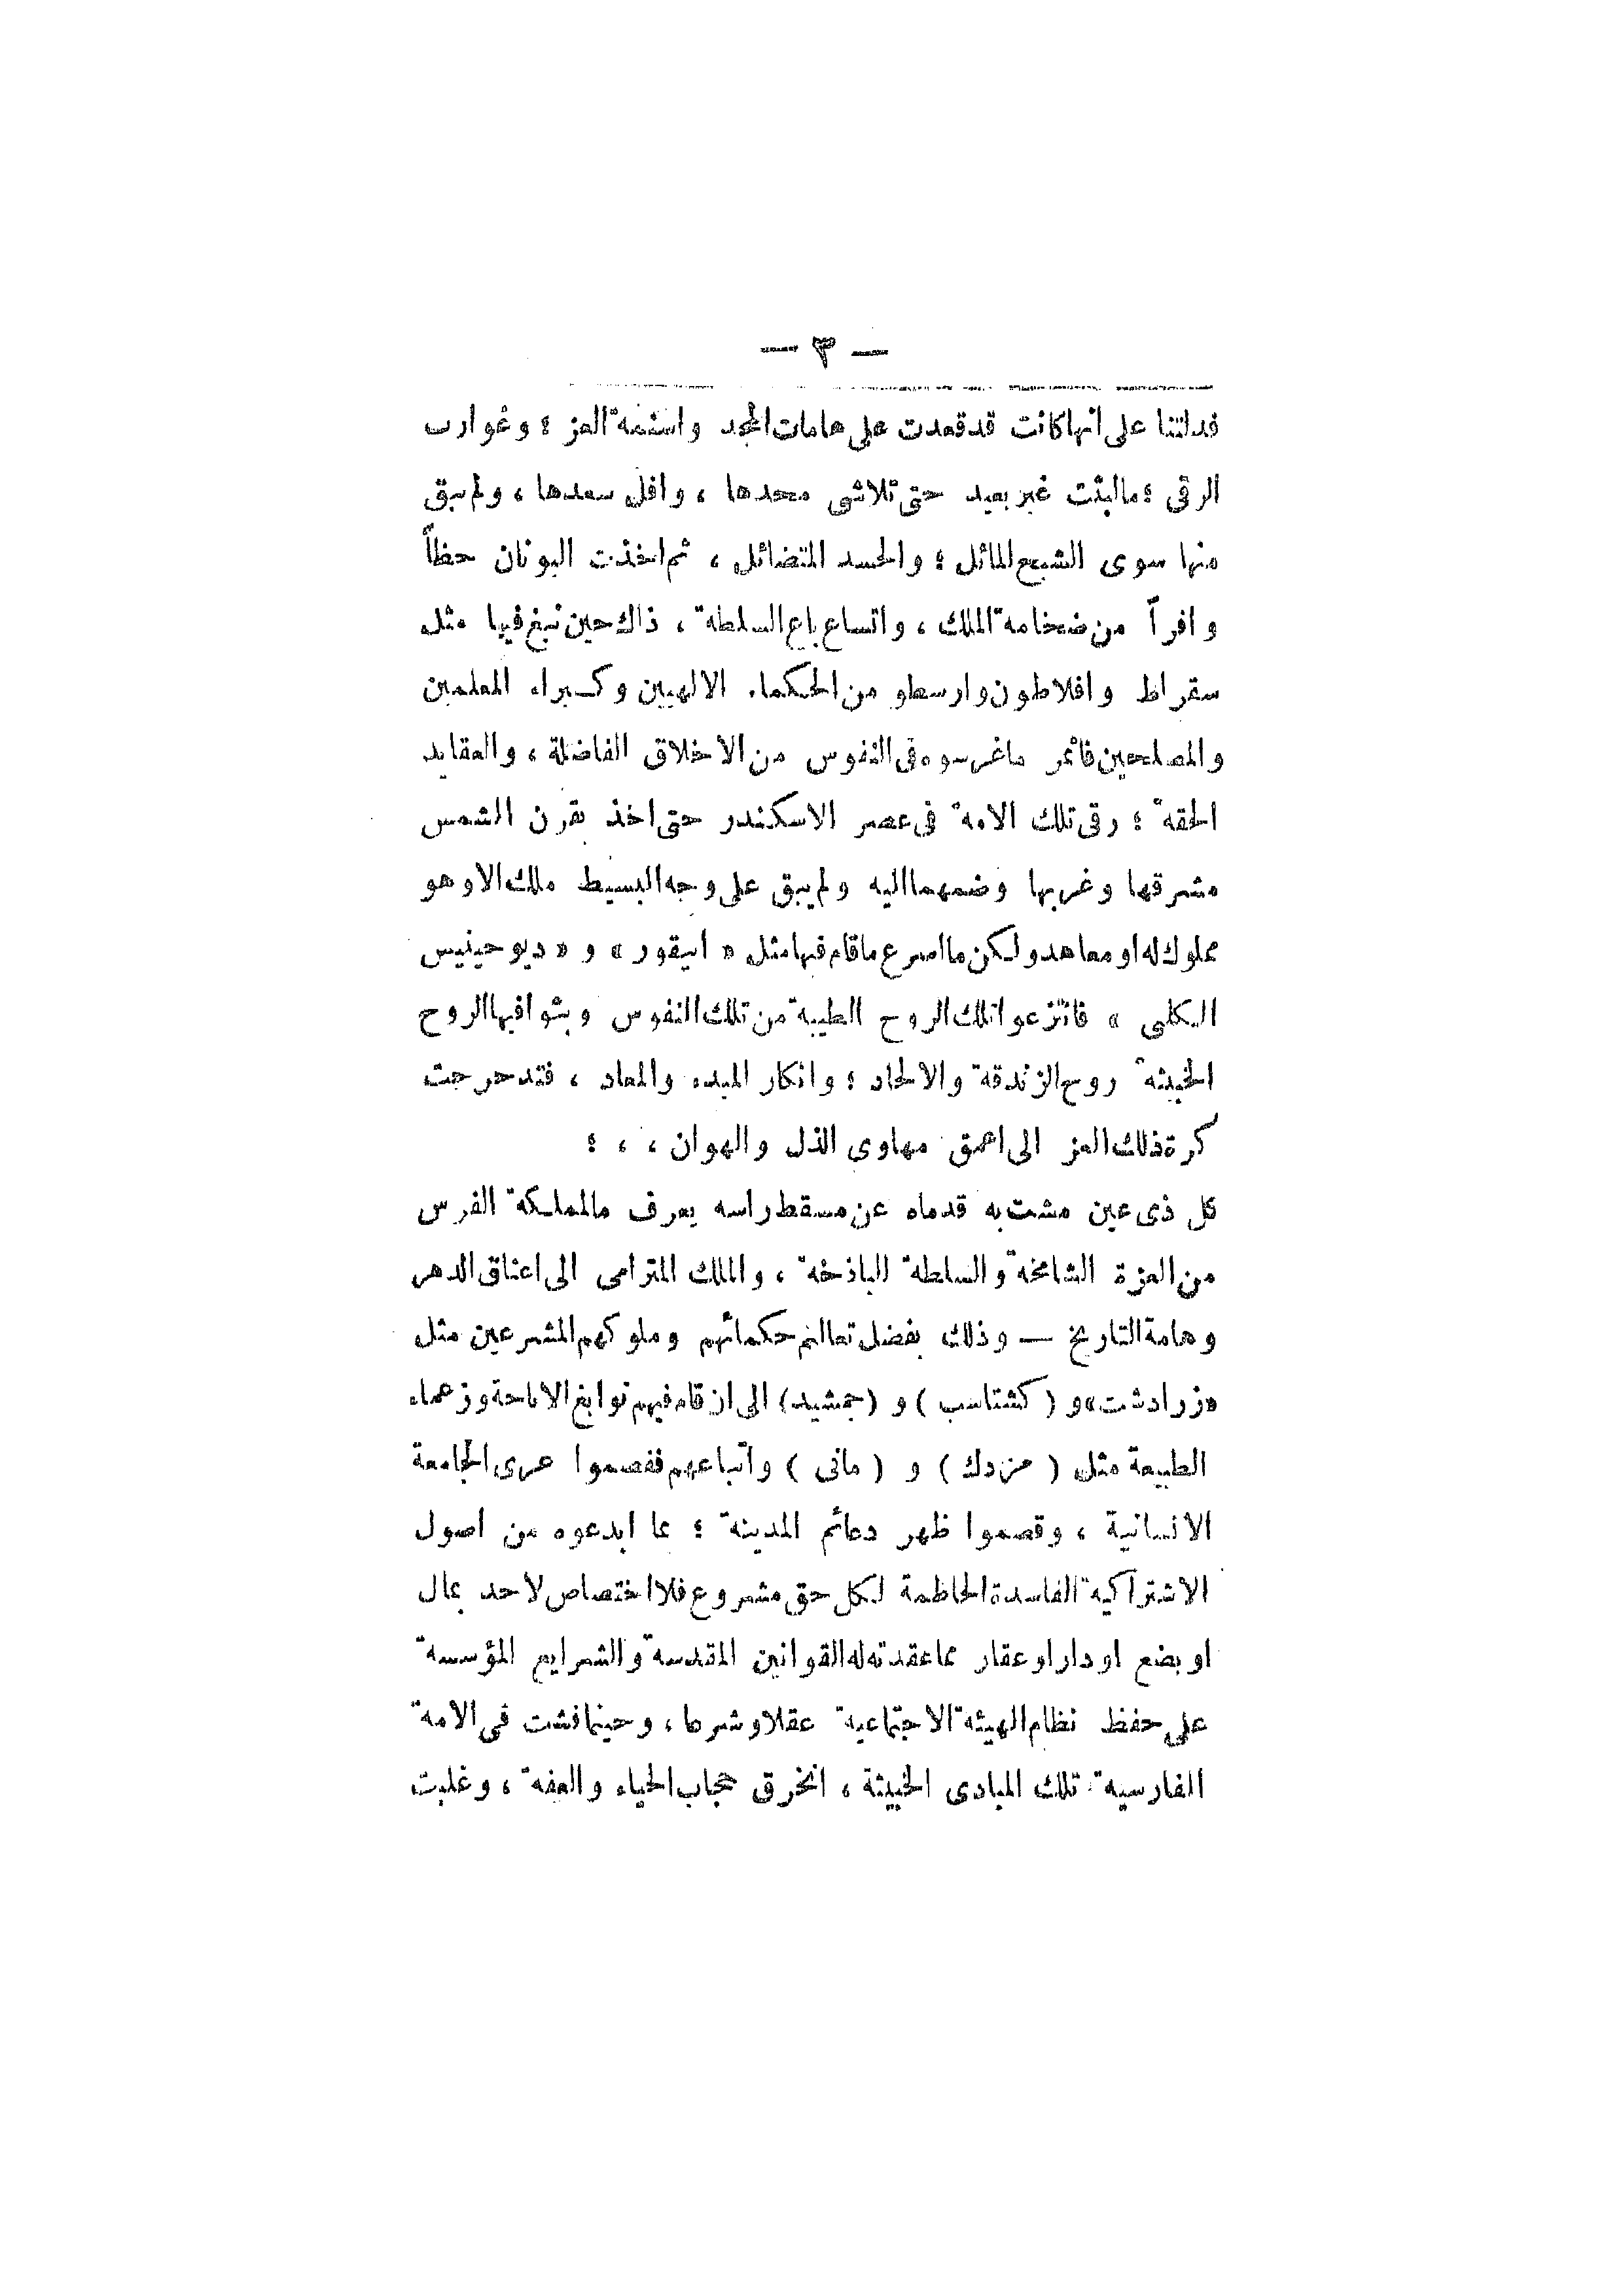 — ٣ —
فدلتنا على انها كانت قد قعدت على هامات المجد واسنمة العز ؛ وغوارب
الرقى ؛ ما لبثت غير بعيد حتى تلاشى مجدها ، وافل سعدها ، ولم يبق
منها سوى الشبح المائل ؛ والجسد المتضائل ، ثم اخذت اليونان حظاً
وافراً من ضخامة الملك ، واتساع باع السلطة ، ذاك حين نبغ فيها مثل
سقراط وافلاطون وارسطو من الحكماء الالهيين وكبراء المعلمين
والمصلحين فاثمر ما غرسوه فى النفوس من الاخلاق الفاضلة ، والعقايد
الحقه ؛ رقى تلك الامه فى عصر الاسكندر حتى اخذ بقرن الشمس
مشرقها وغربها وضمهما اليه ولم يبق على وجه البسيط ملك الا وهو
مملوك له او معاهد ولكن ما اسرع ما قام فيها مثل « ابيقور » و « ديوجينيس
الكلبى » فانتزعوا تلك الروح الطيبة من تلك النفوس وبثوا فيها الروح
الخبيثه روح الزندقة والالحاد ؛ وانكار المبدء والمعاد ، فتدحرجت
كرة ذلك العز الى اعمق مهاوى الذل والهوان ، ، ؛
كل ذى عين مشت به قدماه عن مسقط راسه يعرف ما لمملكة الفرس
من العزة الشامخة والسلطة الباذخة ، والملك المترامى الى اعناق الدهر
وهامة التاريخ — وذلك بفضل تعاليم حكمائهم وملوكهم المشرعين مثل
«زرادشت» و ( كشتاسب ) و (جمشيد) الى ان قام فيهم نوابغ الاباحة وزعماء
الطبيعة مثل ( مزدك ) و ( مانى ) واتباعهم ففصموا عرى الجامعة
الانسانية ، وقصموا ظهر دعائم المدينة ؛ بما ابدعوه من اصول
الاشتراكية الفاسدة الحاطمة لكل حق مشروع فلا اختصاص لاحد بمال
او بضع او دار او عقار مما عقدته له القوانين المقدسة والشرايع المؤسسة
على حفظ نظام الهيئة الاجتماعية عقلا وشرعا ، وحينما فشت فى الامة
الفارسية تلك المبادى الخبيثة ، انخرق حجاب الحياء والعفه ، وغلبت